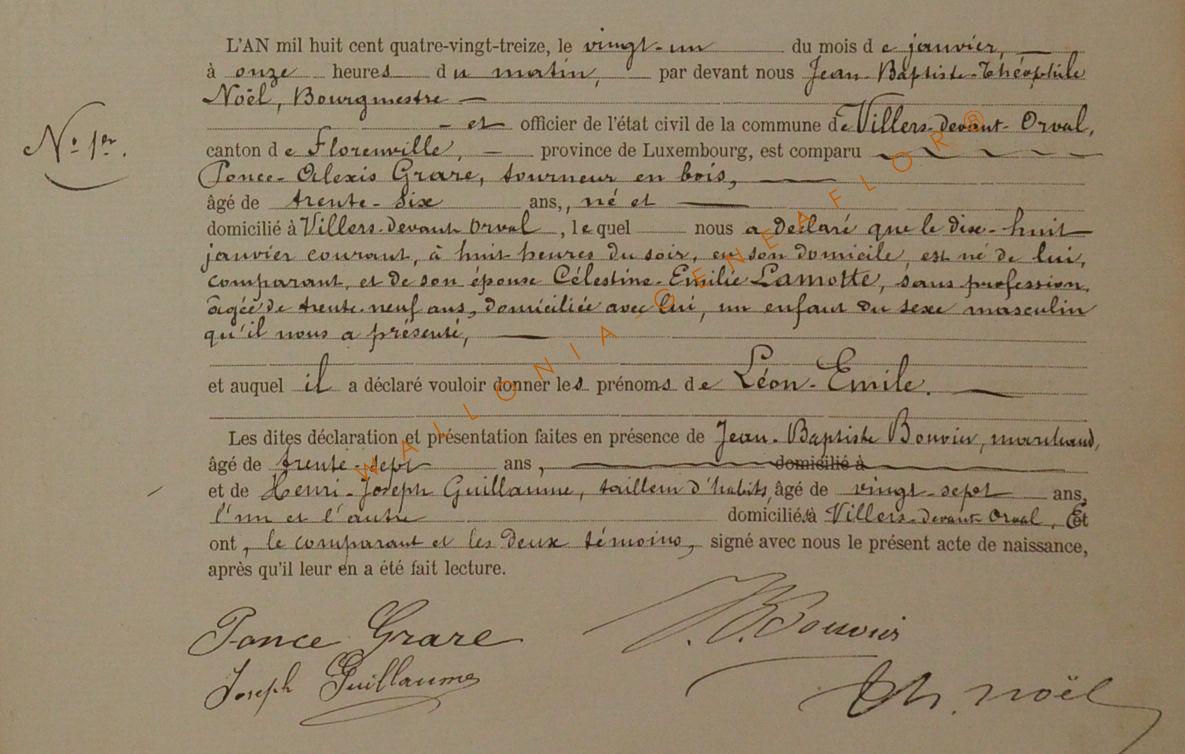 L'AN mil huit cent quatre-vingt-treize, le vingt-un du mois de janvier,
à onze heures du matin, par devant nous Jean-Baptiste-Théophile
Noël, Bourgmestre
- et officier de l'état civil de la commune de Villers-devant-Orval,
N° 1er.
canton de Florenville, province de Luxembourg, est comparu
Ponce-Alexis Grare, tourneur en bois,
âgé de trente-six ans,, né et
domicilié à Villers-devant Orval, lequel nous a déclaré que le dix-huit
janvier courant, à huit heures du soir, en son domicile, est né de lui,
comparant, et de son épouse Célestine-Emilie Lamotte, sans profession,
âgée de trente-neuf ans, domiciliée avec lui, un enfant du sexe masculin
qu'il nous a présenté,
et auquel il a déclaré vouloir donner les prénoms de Léon-Emile.
Les dites déclaration et présentation faites en présence de Jean-Baptiste Bouvier, marchand,
âgé de trente-sept ans, domicilié à
et de Henri-Joseph Guillaume, tailleur d'habits, âgé de vingt-sept ans,
l'un et l'autre domiciliés à Villers-devant-Orval, Et
ont, le comparant et les deux témoins, signé avec nous le présent acte de naissance,
après qu'il leur en a été fait lecture.
Ponce Grare
J. B. Bouvier
Joseph Guillaume
Th. Noël
WALLONIA-GENEAFLOR®